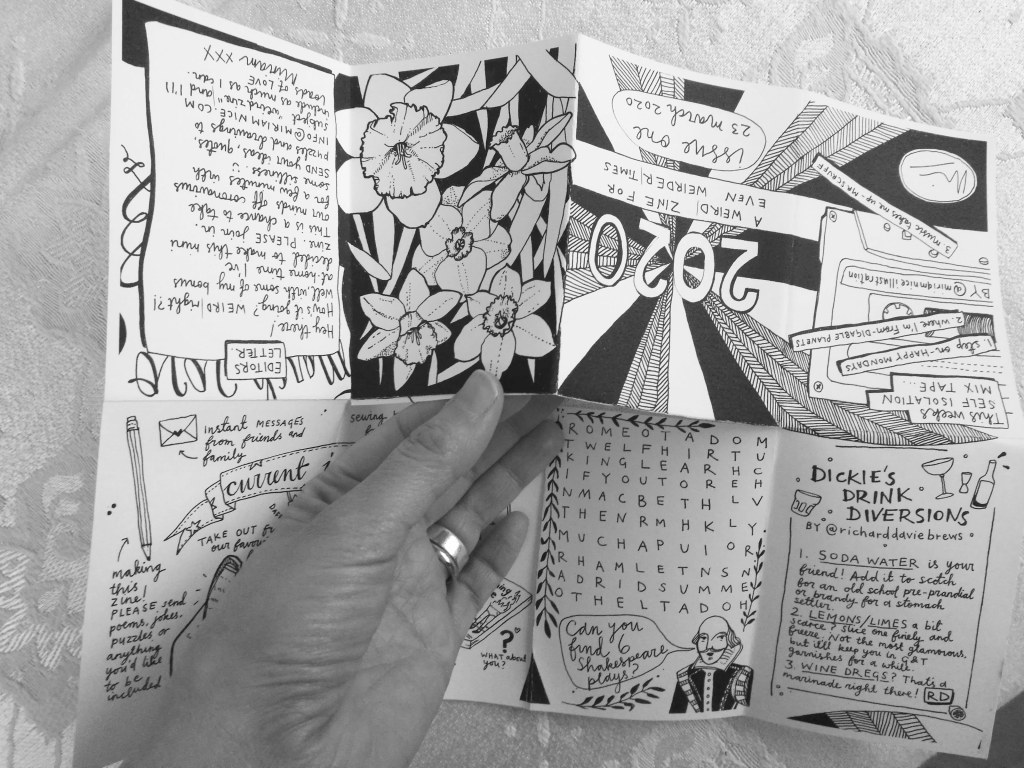 Hey there!
How's it going? WEIRD right?!
Well, with some of my bonus
at home time I've
decided to make this mini
zine. PLEASE join in.
This is a chance to take
our minds off coronavirus
for a few minutes with
some silliness. :)
SEND your ideas, quotes
puzzles and drawings to
INFO@MIRIAMNICE.COM
subject "weird zine" and I'll
include as much as I can.
Loads of LOVE
Miriam xxx
EDITORS
LETTER.
issue one
23 march 2020
A WEIRD ZINE FOR
EVEN WEIRDER TIMES
2020
This weeks
SELF ISOLATION
MIX TAPE...
1. step on - HAPPY MONDAYS
2. where I'm from - DIGABLE PLANETS
3. music makes me up - MR SCRUFF
BY @miriamniceillustration
instant messages
from friends and
family
current
TAKE OUT
our favou
sewing
making
this!
zine.
PLEASE send
poems, jokes,
puzzles or
anything
you'd like
to be
included
?
WHAT about
you?
ROMEOTADOM
TWELFHIRTU
KINGLEARHC
IFYOUTOREH
NMACBETHLV
THENRMHKLY
MUCHAPUIOR
RHAMLETNSN
ADRIDSUMME
OTHELTADOH
Can you
find 6
Shakespeare
plays?
DICKIE'S
DRINK
DIVERSIONS
BY @richarddaviebrews
1. SODA WATER is your
friend! Add it to scotch
for an old school pre-prandial
or brandy for a stomach
settler.
2. LEMONS/LIMES a bit
scarce? Slice one finely and
freeze. Not the most glamorous,
but it'll keep you in G&T
garnishes for a while.
3. WINE DREGS? That's a
marinade right there!
RD